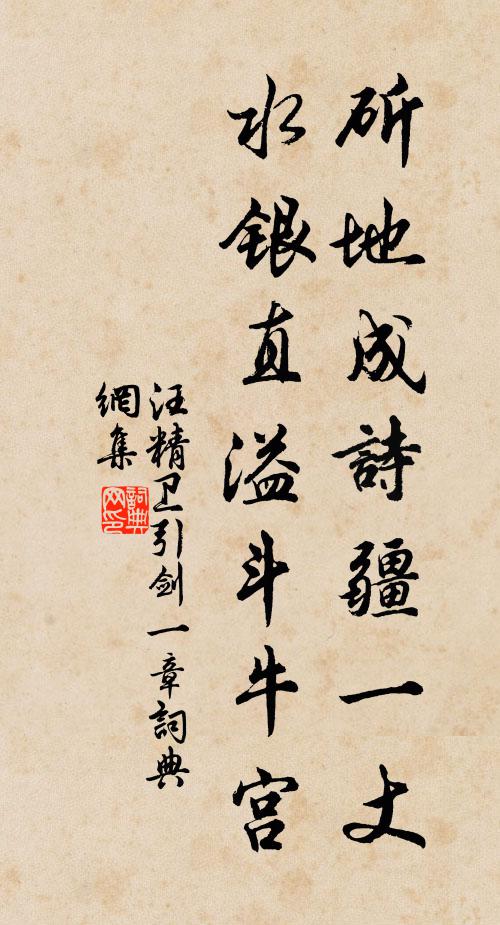 斫地成詩疆一丈
水銀直溢斗牛宮
汪精卫引剑一章詞典
網集
詞典
网印